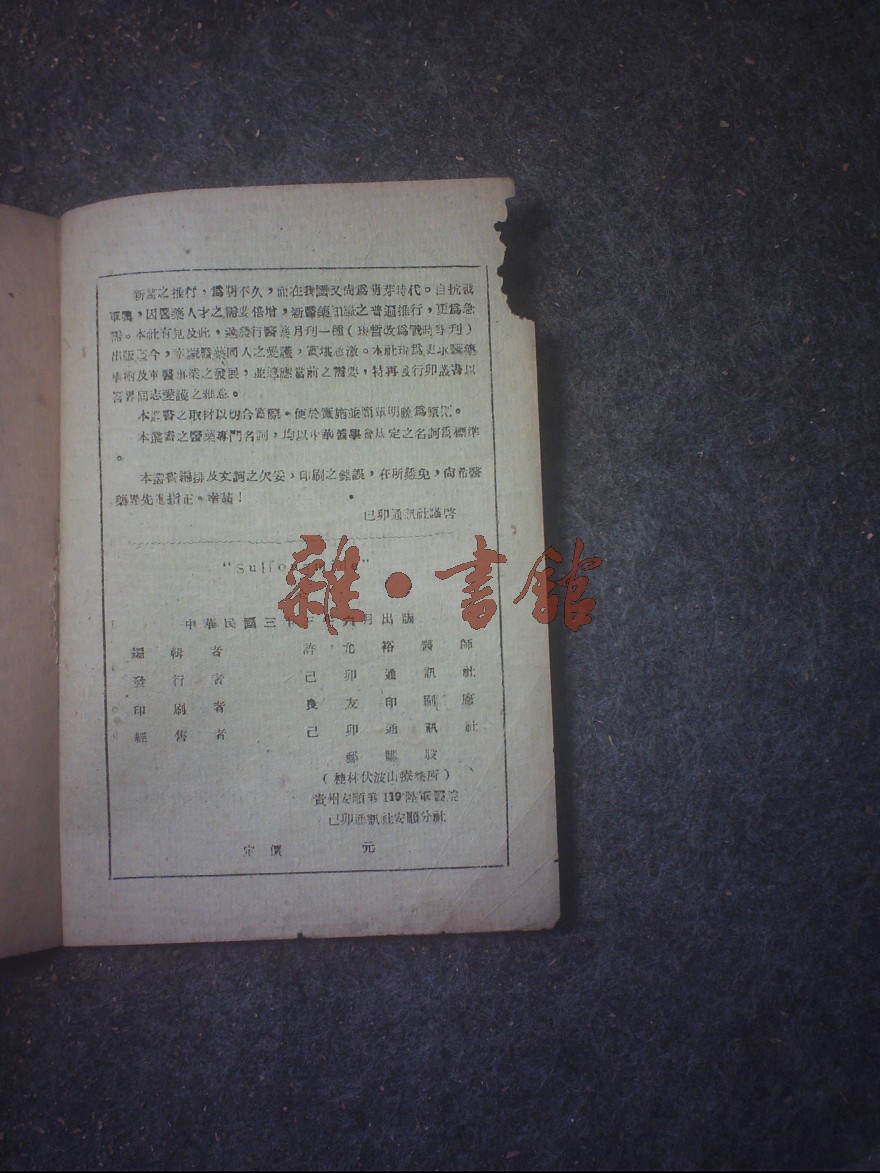 新醫之推行，爲期不久，而在我國又尚爲萌芽時代。自抗戰
軍興，因醫藥人才之需要倍增，新醫藥知識之普遍推行，更爲急
需。本社有見及此，遂發行醫藥月刊一種（現暫改爲戰時季刊）
出版迄今，幸蒙醫藥國人之愛護，實堪感激。本社現爲更求醫藥
學術及軍醫事業之發展，並適應當前之需要，特再發行叢書以
答界同志愛護之雅意。
本叢書之取材以切合實際。便於實施並簡單明瞭爲原則。
本叢書之醫藥專門名詞，均以中華醫學會規定之名詞爲標準
。
本叢書編排及文詞之欠妥，印刷之錯誤，在所難免，尚希醫
藥界先進指正。幸甚！
己卯通訊社謹啓
"Sulfonamide"
雜·書館
中華民國三十三年 月出版
編輯者 許允裕醫師
發行者 己卯通訊社
印刷者 良友印刷廠
經售者 己卯通訊社
郵購股
（桂林伏波山療養所）
貴州安順 119陸軍醫院
己卯通訊社安順分社
定價 元